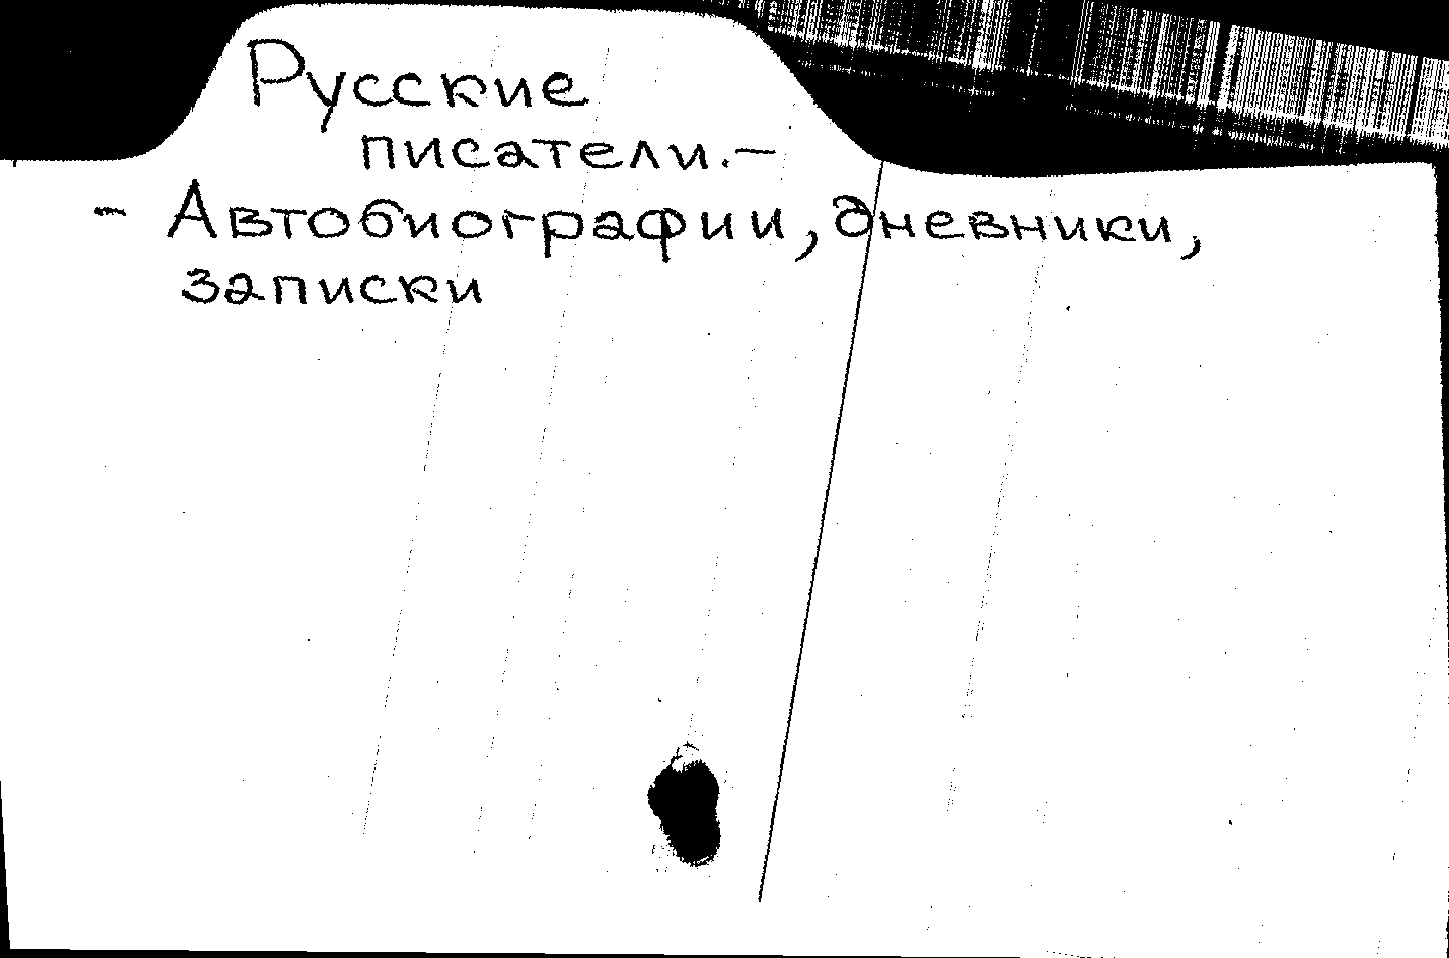 Русские
писатели.—
- Автобиографии, дневники,
записки